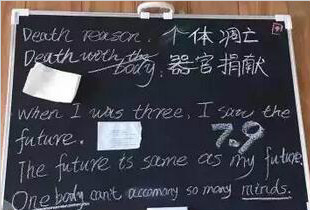 Death reason. 个体凋亡
Death with the body. 器官捐献
When I was three, I saw the
future. 7.9
The future is same as my future.
One body can't accomany so many minds.